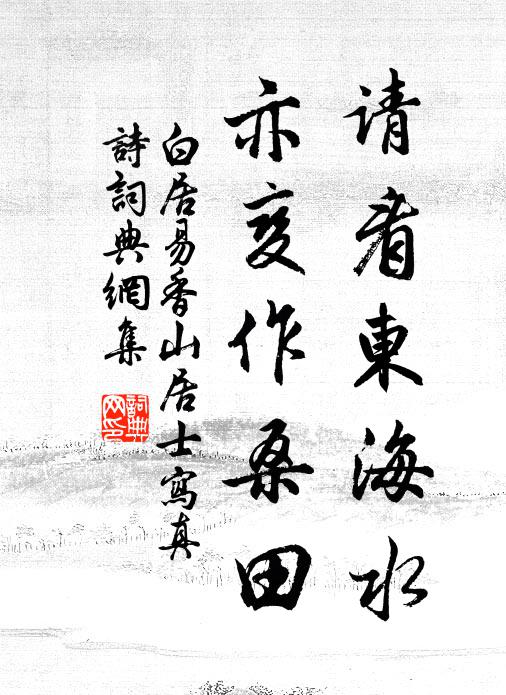 请看東海水
亦变作桑田
白居易香山居士寫真
詩詞典網集
詞典网印